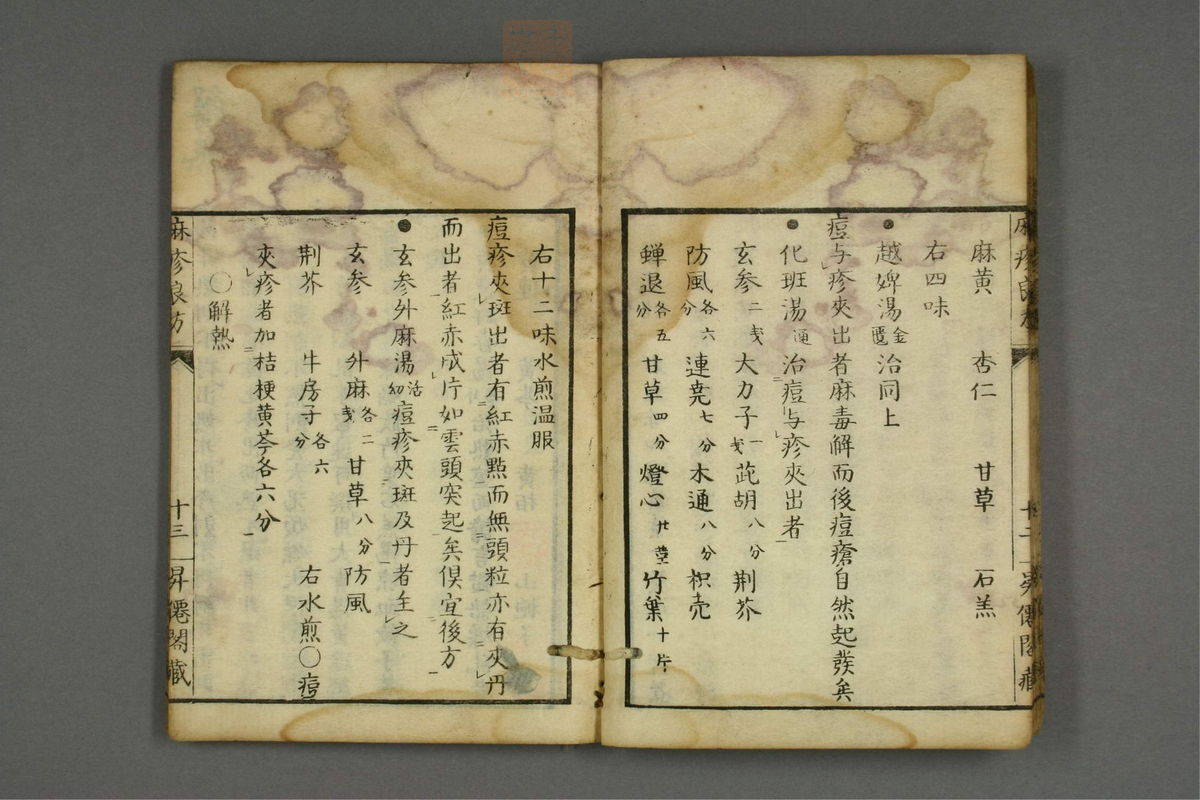 麻疹良方 十二 昇僊閣藏
麻黄 杏仁 甘草 石羔
右四味
●越婢湯金匱 治同上
痘与疹夾出者麻毒解而後痘瘡自然起發矣
●化班湯通 治痘与疹夾出者
玄参二戔 大力子一戔 茈胡八分 荆芥
防風各六分 連尭七分 木通八分 枳壳
蝉退各五分 甘草四分 燈心廿莖 竹葉十片
右十二味水煎温服
痘疹夾斑出者有紅赤㸃而無頭粒亦有夾丹
而出者紅赤成片如雲頭突起矣俱宜後方
●玄参外麻湯活幼 痘疹夾斑及丹者主之
玄参 外麻各二戔 甘草八分 防風
荆芥 牛房子各六分 右水煎〇痘
夾疹者加桔梗黄芩各六分
〇解熱
麻疹良方 十三 昇僊閣藏